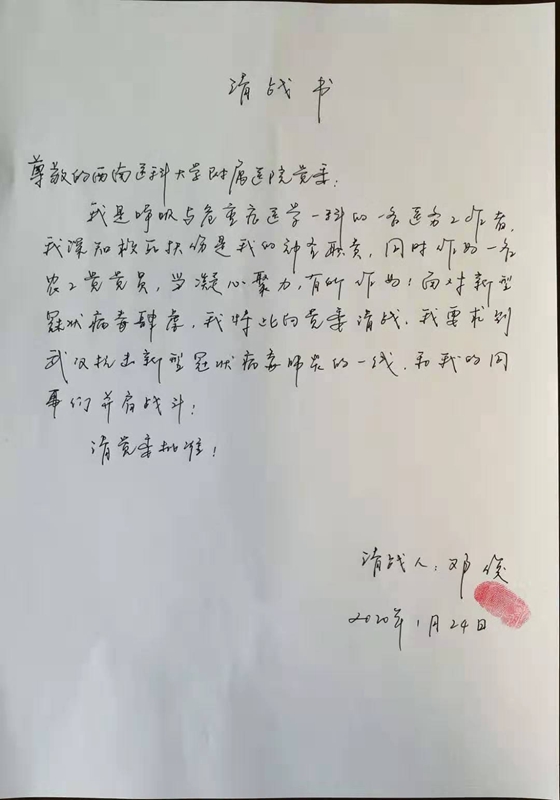 请战书
尊敬的西南医科大学附属医院党委：
我是呼吸与危重症医学一科的一名医务工作者，
我深知救死扶伤是我的神圣职责，同时作为一名
农工党党员，当凝心聚力，有所作为！面对新型
冠状病毒肆虐，我特此向党委请战，我要求到
武汉抗击新型冠状病毒肺炎的一线，和我的同
事们并肩战斗！
请党委批准！
请战人：邓俊
2020年1月24日